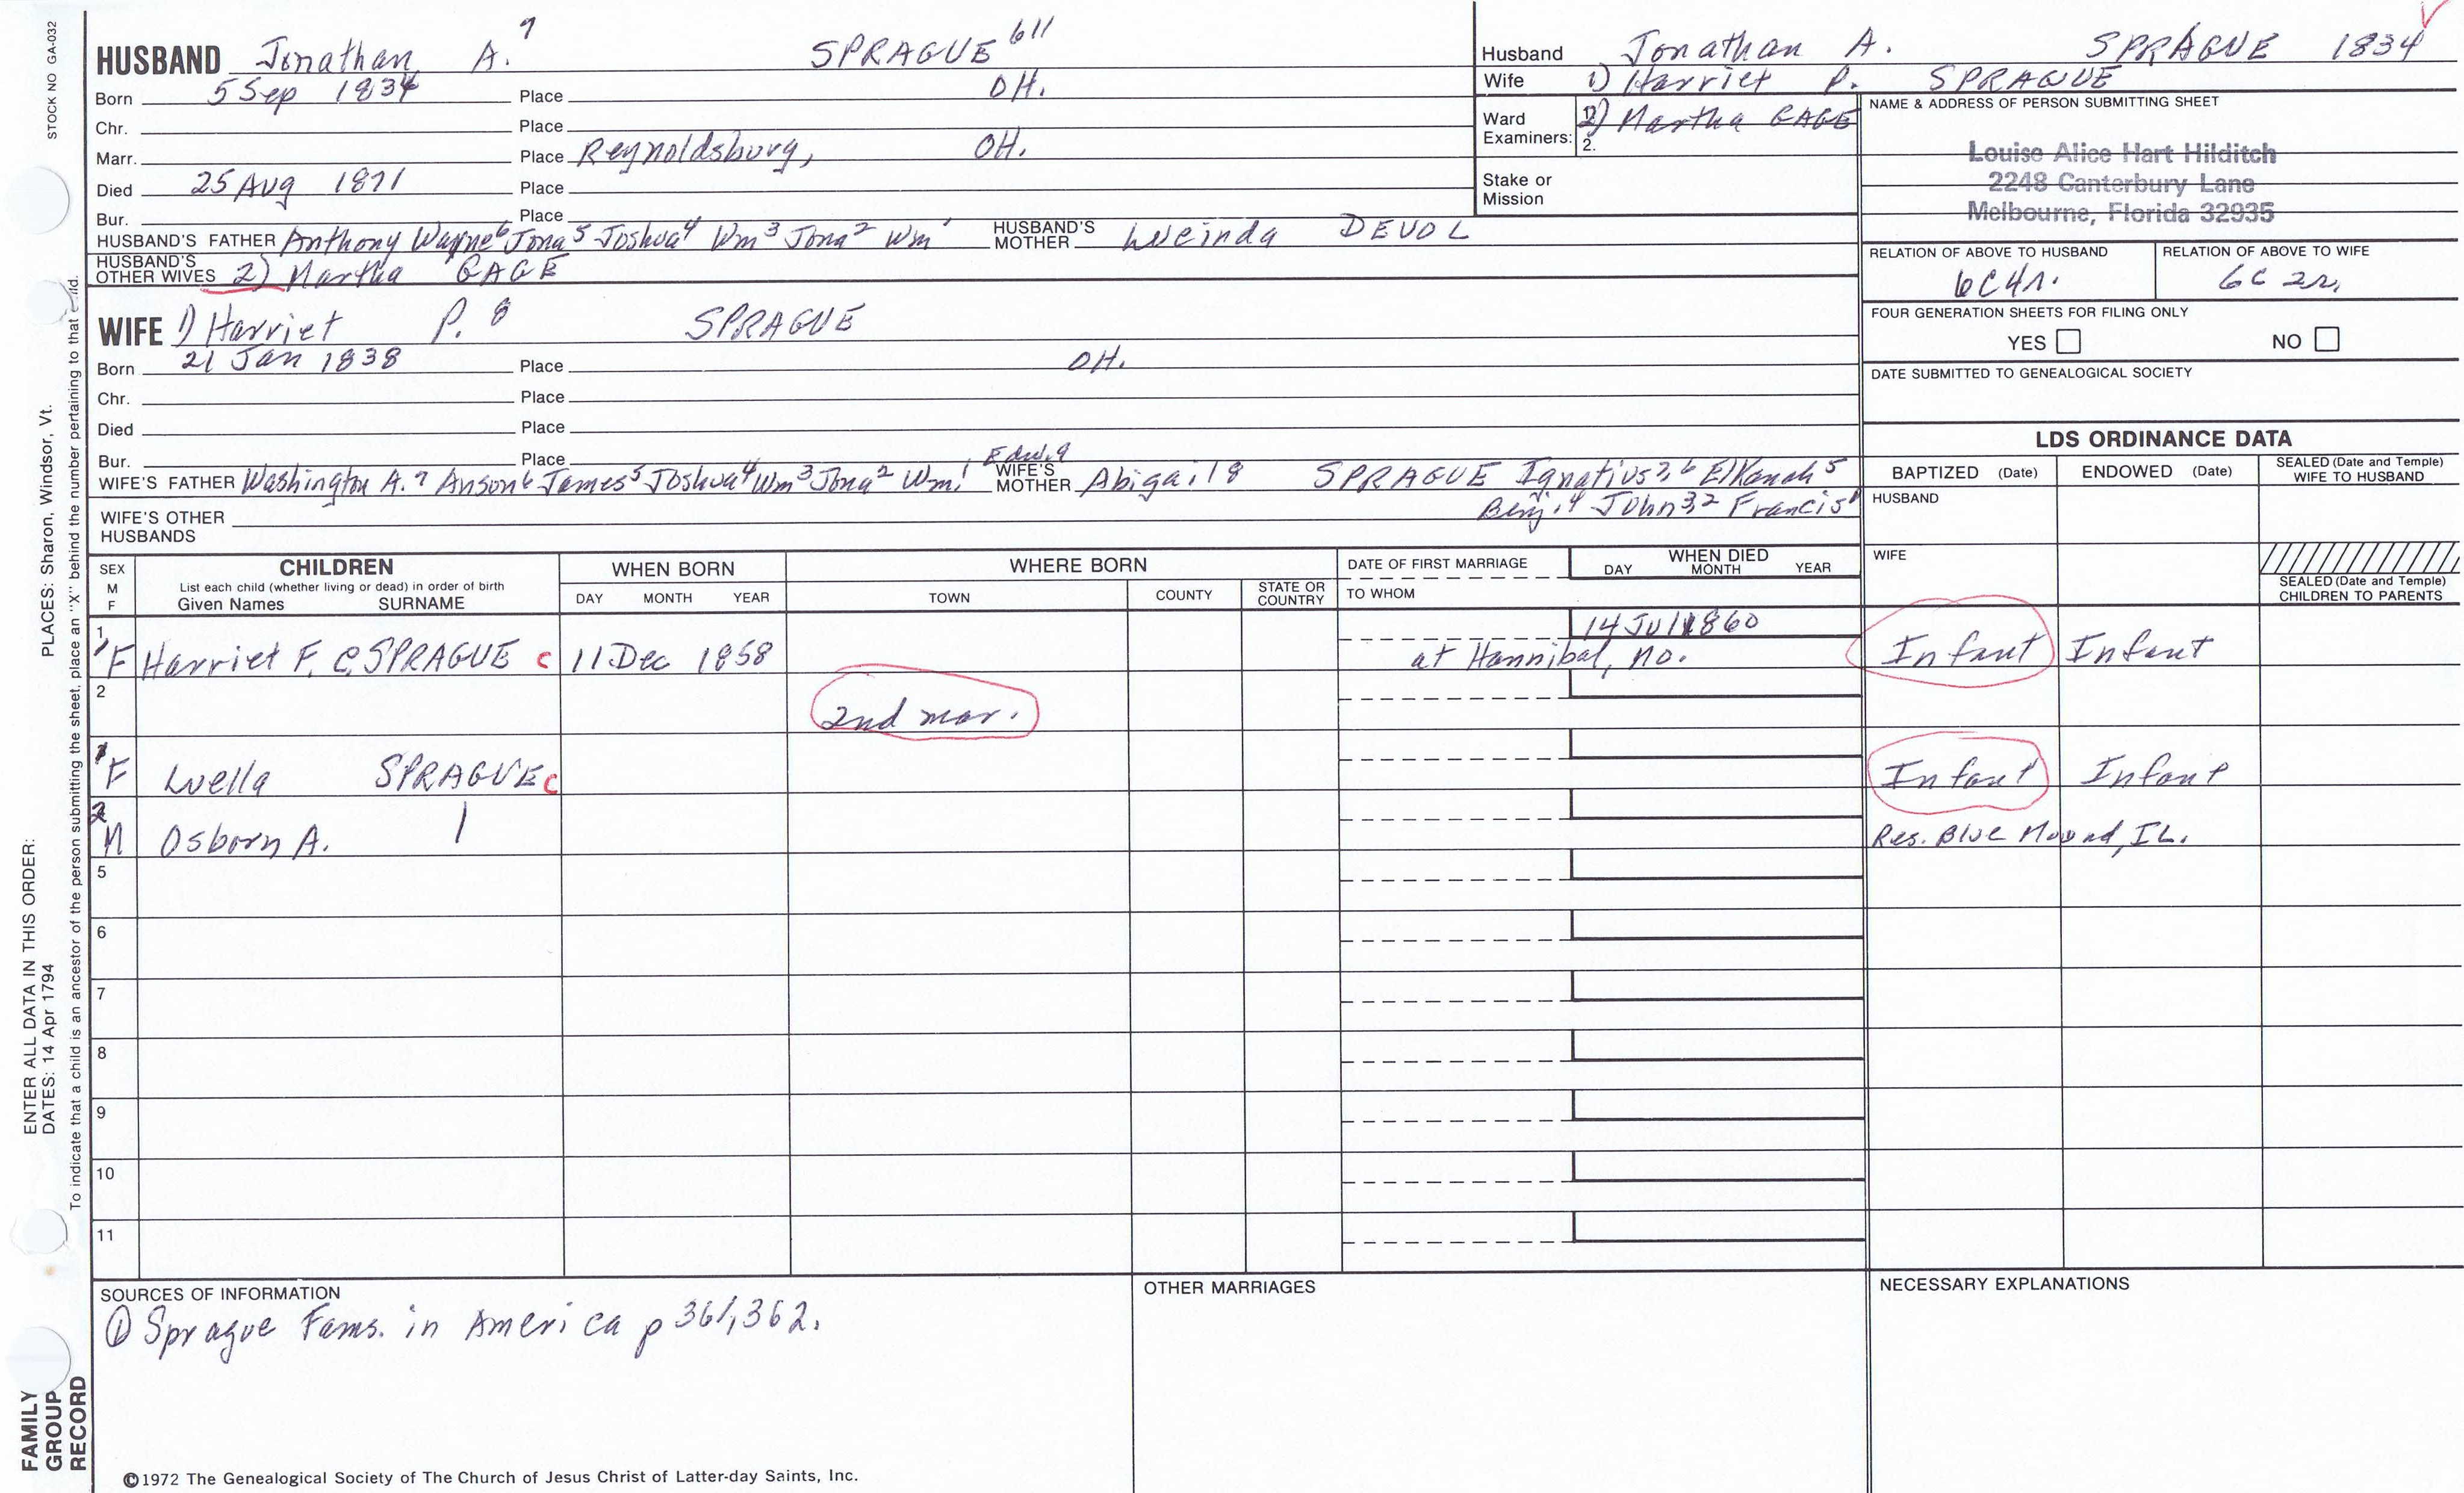 STOCK NO GA-032
PLACES: Sharon, Windsor, Vt.
ENTER ALL DATA IN THIS ORDER:
DATES: 14 Apr 1794
To indicate that a child is an ancestor of the person submitting the sheet, place an "X" behind the number pertaining to that child.
FAMILY GROUP RECORD
HUSBAND Jonathan A.7 SPRAGUE 611
Born 5 Sep 1834 Place OH.
Chr. Place
Marr. Place Reynoldsburg, OH.
Died 25 Aug 1871 Place
Bur. Place
HUSBAND'S FATHER Anthony Wayne6 Jona5 Joshua4 Wm3 Jona2 Wm1 HUSBAND'S MOTHER Lucinda DEVOL
HUSBAND'S OTHER WIVES 2) Martha GAGE
WIFE 1) Harriet P. 8 SPRAGUE
Born 21 Jan 1838 Place OH.
Chr. Place
Died Place
Bur. Place
Edw.9
WIFE'S FATHER Washington A.7 Anson6 James5 Joshua4 Wm3 Jona2 Wm1 WIFE'S MOTHER Abigail8 SPRAGUE Ignatius7,6 Elkanah5
Benj.4 John3,2 Francis1
WIFE'S OTHER HUSBANDS
Husband Jonathan A. SPRAGUE 1834
Wife 1) Harriet P. SPRAGUE
Ward Examiners: 2) Martha GAGE
2.
Stake or Mission
NAME & ADDRESS OF PERSON SUBMITTING SHEET
Louise Alice Hart Hilditch
2248 Canterbury Lane
Melbourne, Florida 32935
RELATION OF ABOVE TO HUSBAND RELATION OF ABOVE TO WIFE
6C4r. 6C 2r.
FOUR GENERATION SHEETS FOR FILING ONLY
YES NO
DATE SUBMITTED TO GENEALOGICAL SOCIETY
LDS ORDINANCE DATA
BAPTIZED (Date) ENDOWED (Date) SEALED (Date and Temple) WIFE TO HUSBAND
HUSBAND
WIFE
SEALED (Date and Temple) CHILDREN TO PARENTS
SEX M F CHILDREN WHEN BORN WHERE BORN DATE OF FIRST MARRIAGE WHEN DIED
List each child (whether living or dead) in order of birth
Given Names SURNAME DAY MONTH YEAR TOWN COUNTY STATE OR COUNTRY TO WHOM DAY MONTH YEAR
14 Jul 1860
1 F Harriet F. C. SPRAGUE c 11 Dec 1858 at Hannibal, Mo. Infant Infant
2 2nd mar.
1 F Luella SPRAGUE c Infant Infant
2 M Osborn A. | Res. Blue Mound, IL.
5
6
7
8
9
10
11
SOURCES OF INFORMATION
① Sprague Fams. in America p 361, 362.
OTHER MARRIAGES
NECESSARY EXPLANATIONS
©1972 The Genealogical Society of The Church of Jesus Christ of Latter-day Saints, Inc.